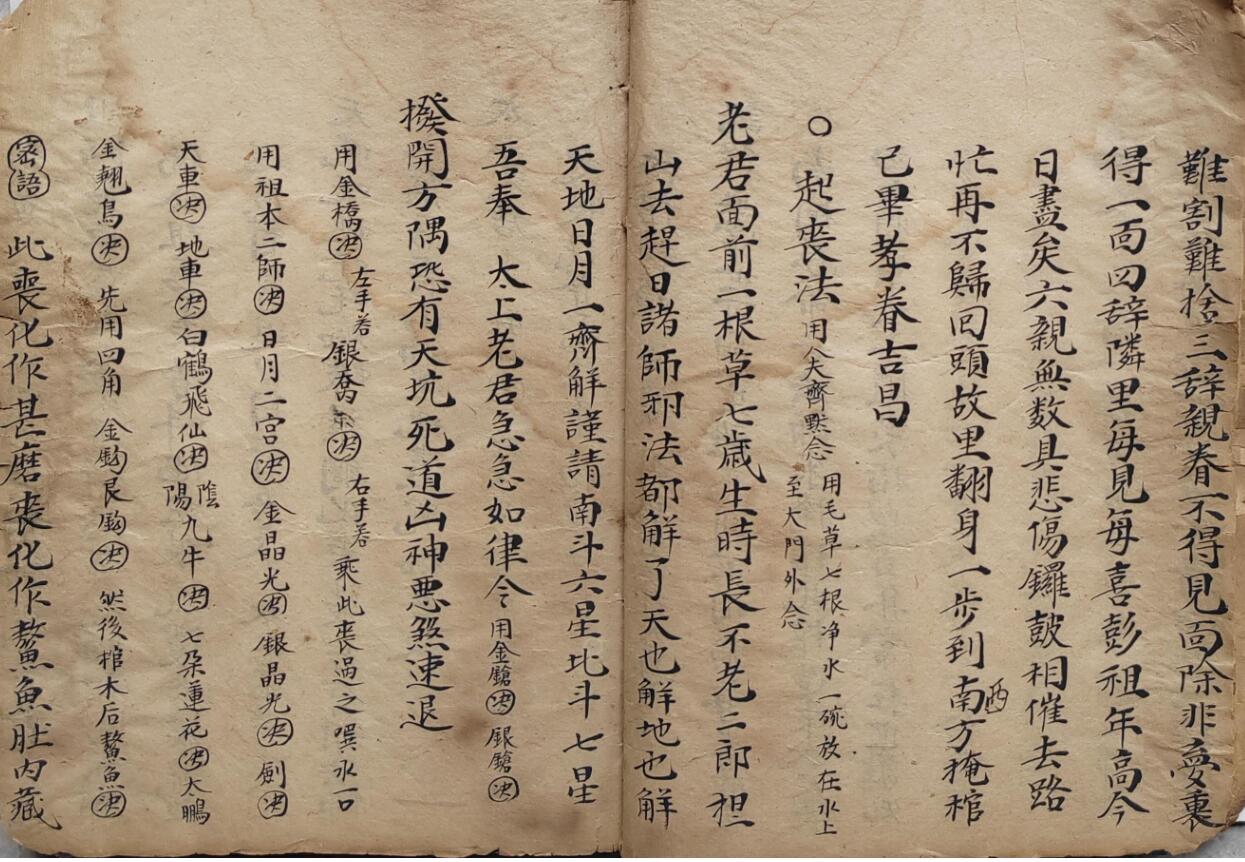 難割難捨三辞親眷不得見面除非愛裏
得一面四辞隣里每見每喜彭祖年高今
日盡矣六親無数具悲傷鑼皷相催去路
忙再不歸回頭故里翻身一步到南方掩棺
西
已畢孝眷吉昌
○起喪法 用八夫齊點念
用毛草七根净水一碗放在水上
至大門外念
老君面前一根草七歲生時長不老二郎担
山去趕日諸師邪法都解了天也解地也解
天地日月一齊解謹請南斗六星北斗七星
吾奉 太上老君急急如律令 用金鎗决 银鎗决
撥開方隅恐有天坑死道凶神悪煞速退
用金橋决 左手若 銀喬决 右手若 乘此喪過之 噀水一口
用祖本二師决 日月二宫决 金晶光决 銀晶光决 劍决
天車决 地車决 白鶴飛仙决 陰陽九牛决 七朶蓮花决 大鵬
金翅鳥决 先用四角 金鈎艮鈎决 然後棺木后鰲魚决
密語 此喪化作甚麽喪化作鰲魚肚内藏